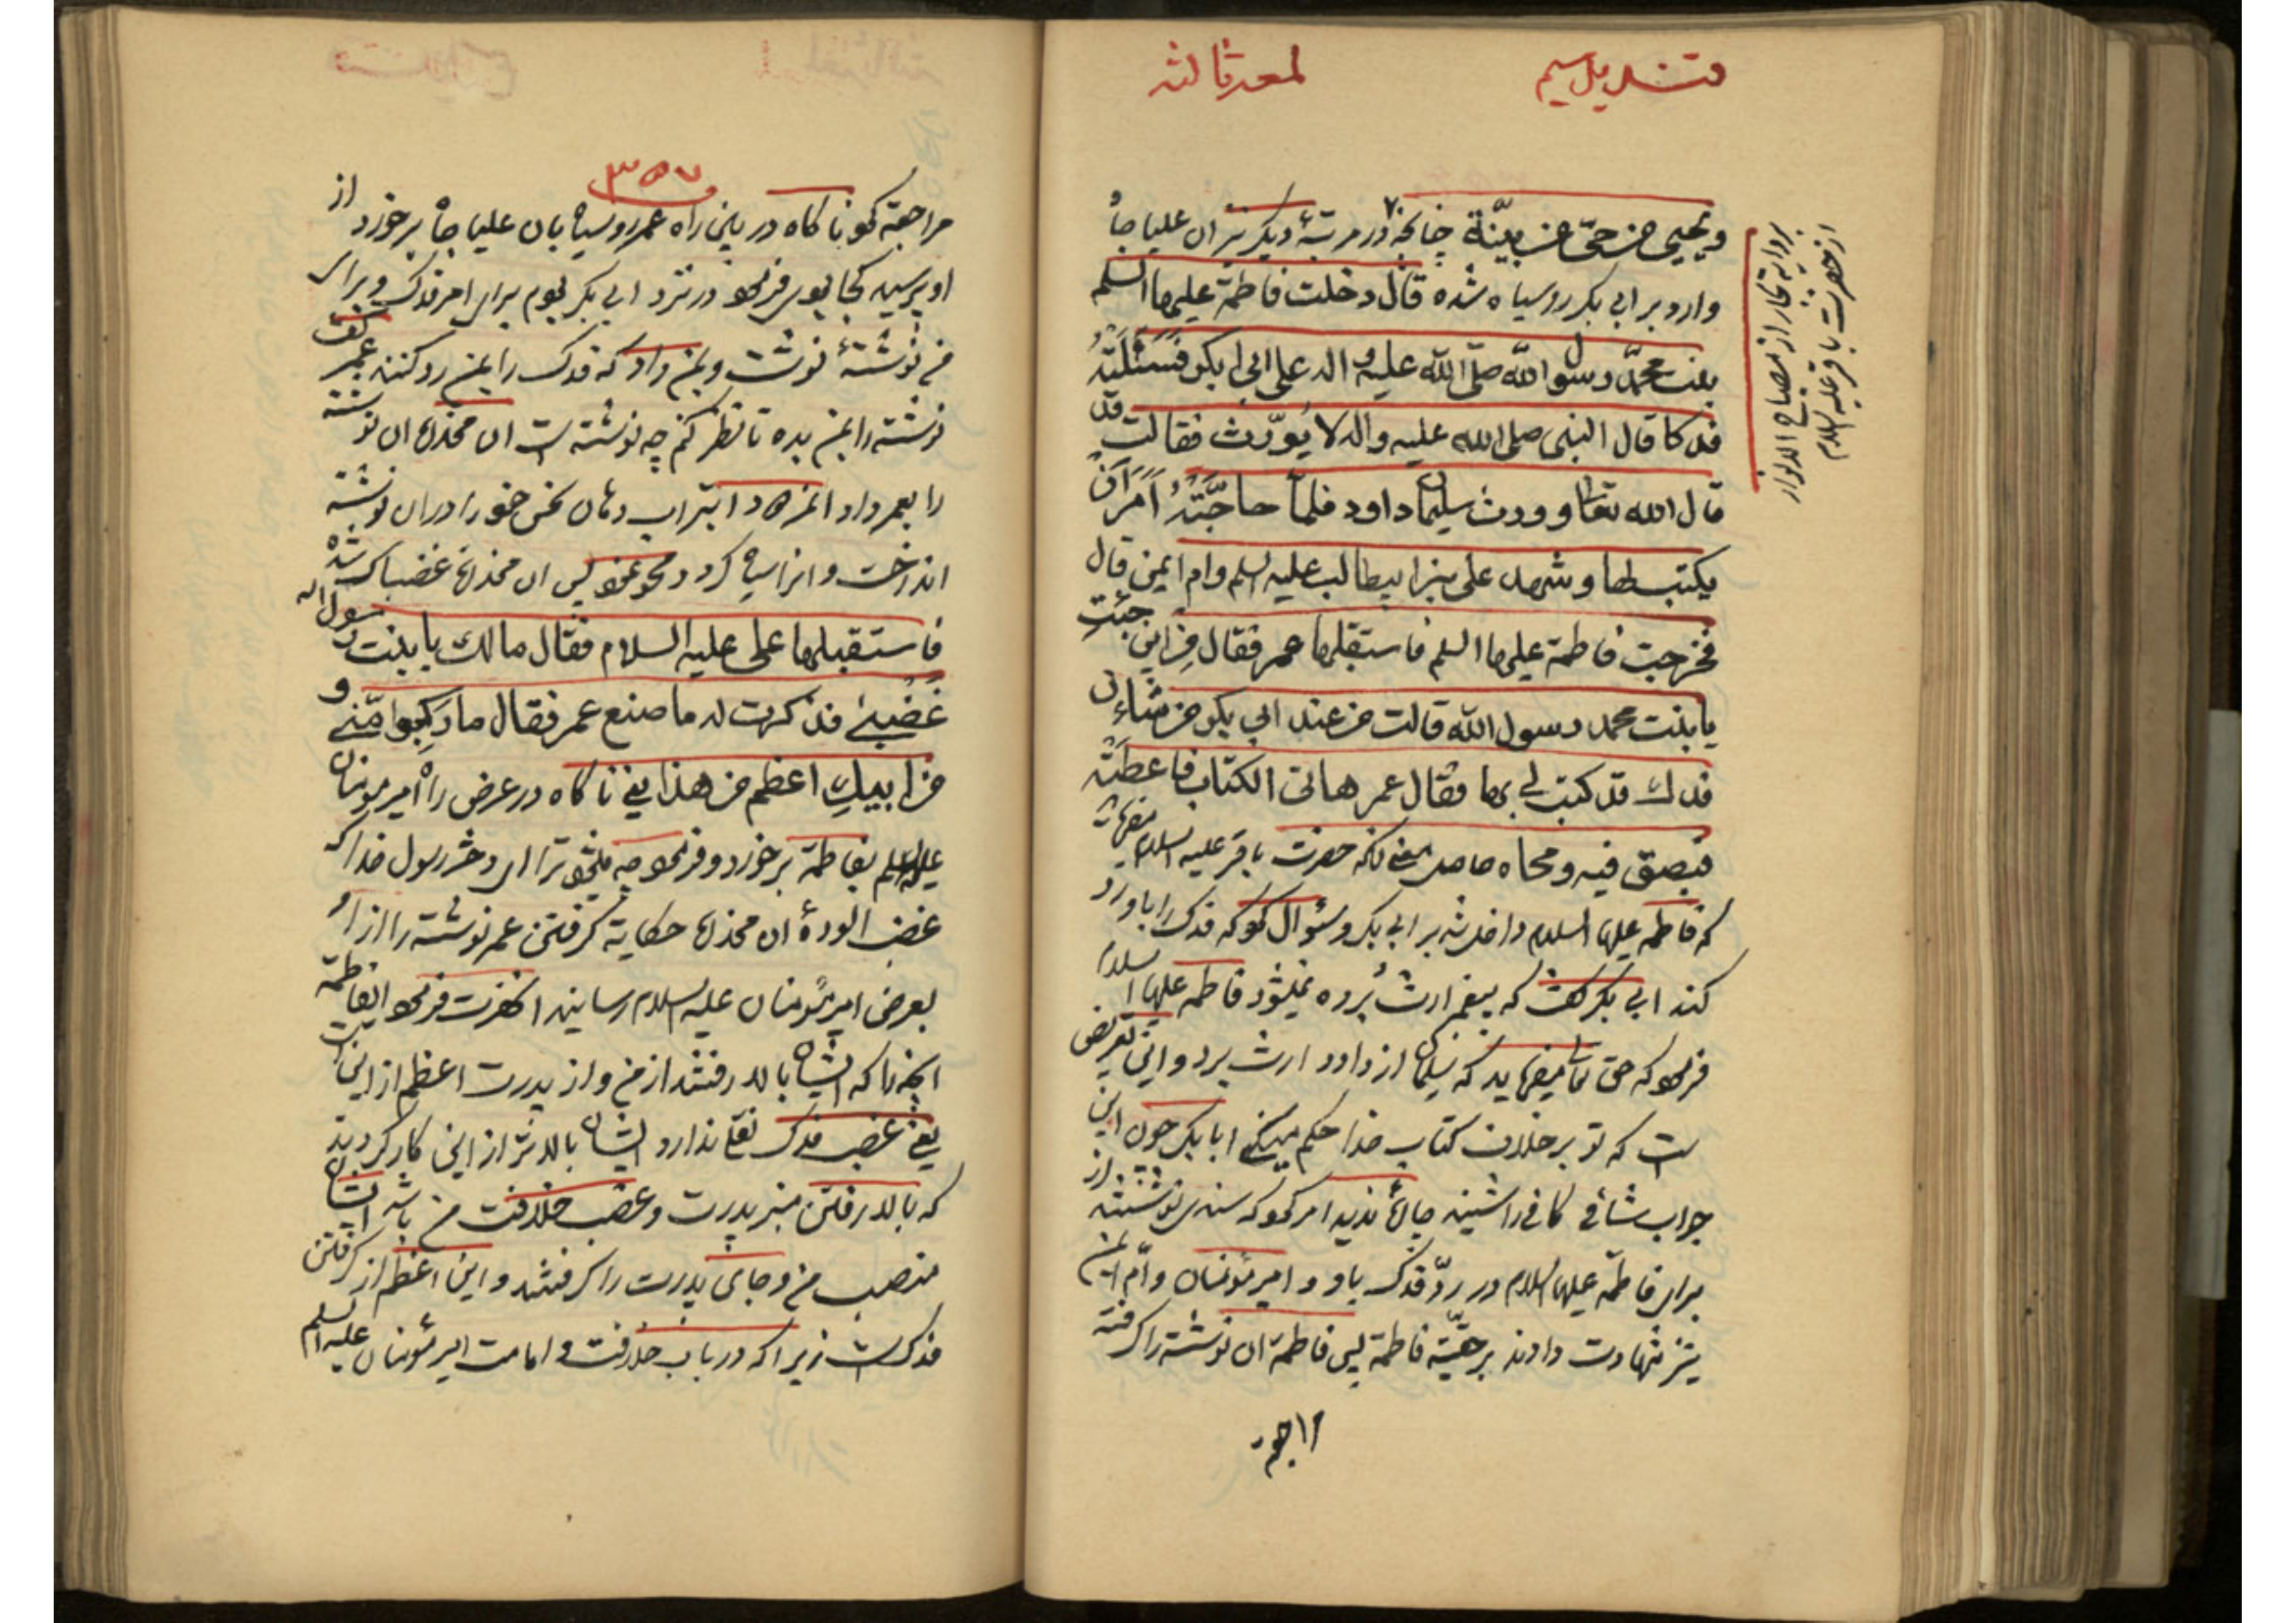 قندیل سیم
لمعه ثالثه
بروایة بحار از مصباح الانوار
از حضرت باقر علیه السلام
ویحیی من حیّ عن بیّنة چنانچه در مرتبهٔ دیگر نیز ان علیا جاه
وارد بر ابی بکر روسیاه شده قال دخلت فاطمة علیها السلم
بنت محمّد رسول اللّه صلّی اللّه علیه و اله علی ابی بکر فسئلته
فدکا قال النبی صلی الله علیه واله لا یُورّث فقالت قد
قال الله تعا وورث سلیمان داود فلمّا حاجّته امر ان
یکتب لها وشهد علی بن ابیطالب علیه السلم وام ایمن قال
فخرجت فاطمة علیها السلم فاستقبلها عمر فقال من این جئتِ
یا بنت محمد رسول اللّه قالت من عند ابی بکر من شاءن
فدك قد کتب لی بها فقال عمر هاتی الکتاب فاعطته
فبصق فیه ومحاه حاصل معنی انکه حضرت باقر علیه السلام میفرماید
که فاطمه علیها السلام داخل شد بر ابی بکر وسئوال نمود که فدک را باو رد
کند ابی بکر گفت که پیغمبر ارث برده نمیشود فاطمه علیها السلام
فرمود که حق تعالی میفرماید که سلیمان از داود ارث برد و این تعریض
است که تو برخلاف کتاب خدا حکم میکنی ابا بکر چون این
جواب شافی کافی را شنید چارهٔ ندید امر نمود که سندی نوشتند از
برای فاطمه علیها السلام در ردّ فدک باو و امیر مؤمنان وامّ ایمن
نیز شهادت دادند بر حقیّة فاطمة پس فاطمة ان نوشته را گرفته
مراجعة
۳۵۷
مراجعة نمود ناگاه در بین راه عمر روسیاه بان علیا جاه برخورد از
او پرسید کجا بودی فرمود در نزد ابی بکر بودم برای امر فدک و برای
من نوشتهٔ نوشت وبمن داد که فدک را بمن رد کنند عمر گفت
نوشته را بمن بده تا نظر کنم چه نوشته است ان مخدره ان نوشته
را بعمر داد انمرد ابتر اب دهان نحس خود را در ان نوشته
انداخت و انرا سیاه کرد ومحو نمود پس ان مخدره غضبناک شده
فاستقبلها علی علیه السلام فقال مالك یا بنت رسول الله
غَضُبیٰ فذکرت له ما صنع عمر فقال ما رکبوا منّی و
من ابیكِ اعظم من هذا یعنی ناگاه در عرض راه امیر مؤمنان
علیه السلم بفاطمة برخورد و فرمود چه میشود ترا ای دختر رسول خدا که
غضب الودهٔ ان مخدره حکایة گرفتن عمر نوشته را از او
بعرض امیر مؤمنان علیه السلام رسانید انحضرت فرمود ایفاطمة
انچه را که ایشان بالا رفتند از من و از پدرت اعظم از این است
یعنی غصب فدک نقلی ندارد ایشان بالاتر از این کار کردند
که بالا رفتن منبر پدرت وغصب خلافت من باشد ایشان
منصب من وجای پدرت را گرفتند و این اعظم از گرفتن
فدک است زیرا که در باب خلافت و امامت امیر مؤمنان علیه السلم